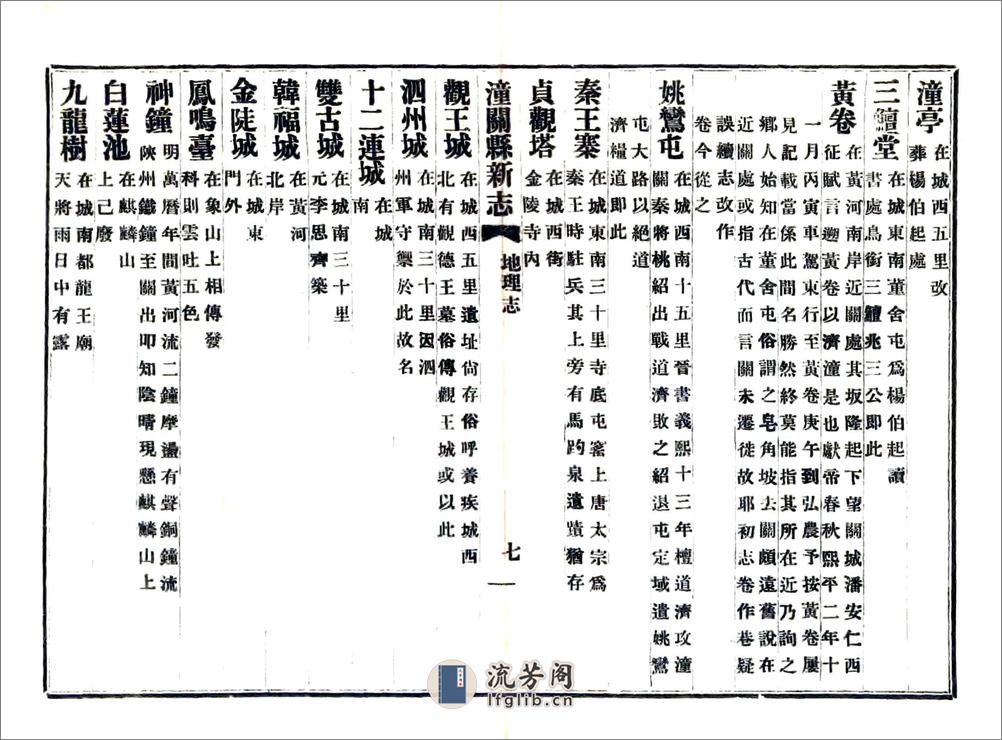 潼亭
在城西五里改
葬楊伯起處
三鱣堂
在城東南董舍屯爲楊伯起讀
書處鳥銜三鱣兆三公即此
黃卷
在黃河南岸近關處其坂隆起下望關城潘安仁西
征賦言遡黃卷以濟潼是也獻帝春秋熙平二年十
一月丙寅車駕東行至黃卷庚午到弘農予按黃卷屢
見記載當係此間名勝然終莫能指其所在近乃詢之
鄉人始知在董舍屯俗謂之皂角坡去關頗遠舊說在
近關處或指古代而言關未遷徙故耶初志卷作巷疑
誤續志改作
卷今從之
姚鸞屯
在城西南十五里晉書義熙十三年檀道濟攻潼
關秦將桃紹出戰道濟敗之紹退屯定域遣姚鸞
屯大路以絕道
濟糧道即此
秦王寨
在城東南三十里寺底屯寨上唐太宗爲
秦王時駐兵其上旁有馬趵泉遺蹟猶存
貞觀塔
在城西街
金陵寺內
潼關縣新志 地理志 七
觀王城
在城西五里遺址尙存俗呼養疾城西
北有觀德王墓俗傳觀王城或以此
泗州城
在城南三十里因泗
州軍守禦於此故名
十二連城
在城
南
雙古城
在城南三十里
元李思齊築
韓福城
在黃河
北岸
金陡城
在城東
門外
鳳鳴臺
在象山上相傳發
科則雲吐五色
神鐘
明萬曆年間黃河流二鐘摩盪有聲銅鐘流
陝州鐵鐘至關出叩知陰晴現懸麒麟山上
白蓮池
在麒麟山
上己廢
九龍樹
在城南南都龍王廟
天將雨日中有露
流芳阁
lfglib.cn